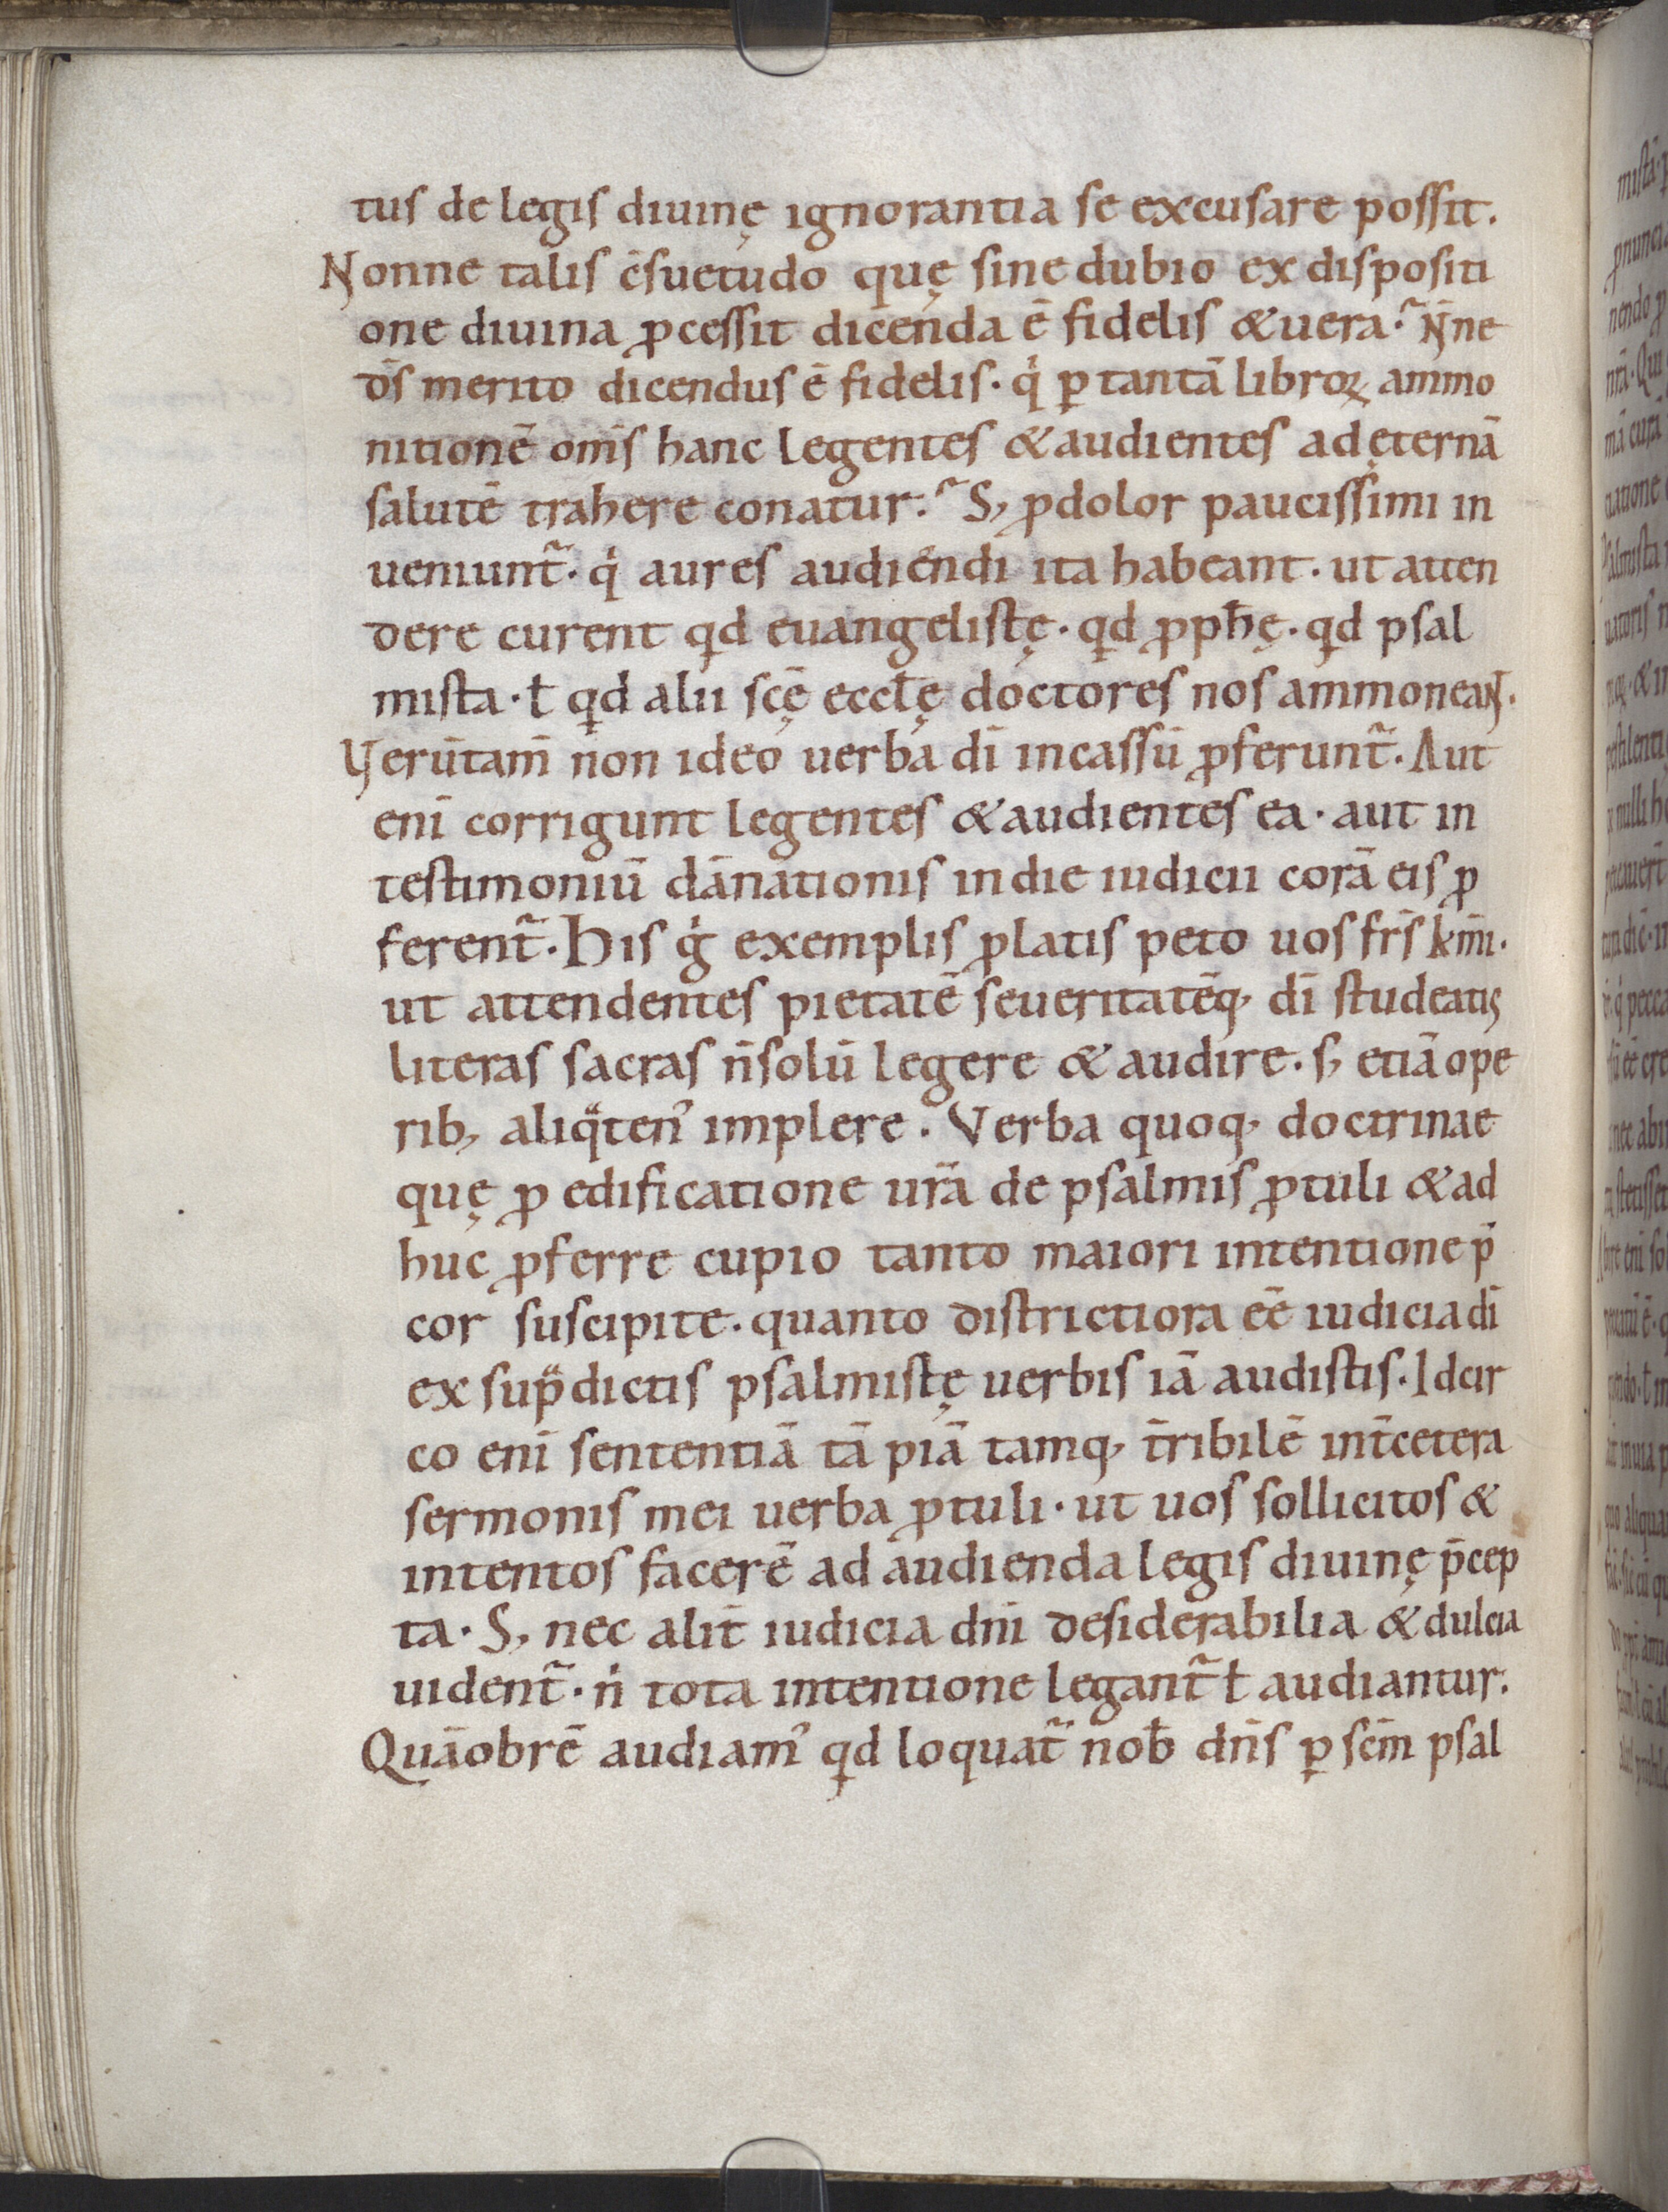 tus de legis diuinę ignorantia se excusare possit.
Nonne talis c̄suetudo quę sine dubio ex dispositi
one diuina ꝓcessit dicenda ē fidelis & uera. N̄ne
ds̄ merito dicendus ē fidelis. q̇ ꝑ tantā libroꝝ ammo
nitionē om̄s hanc legentes & audientes ad ęternā
salutē trahere conatur. S; ꝓdolor paucissimi in
ueniunt̄. q̇ aures audiendi ita habeant. ut atten
dere curent qd euangelistę. qd ꝓph̄ę. qd psal
mista. ł qd alii scę̄ eccłę doctores nos ammoneant.
Verūtam̄ non ideo uerba dī incassū ꝓferunt̄. Aut
eni̅ corrigunt legentes & audientes ea. aut in
testimoniū dānationis in die iudicii corā eis ꝓ
ferent̄. His g̊ exemplis ꝓlatis peto uos frs̄ km̄i.
ut attendentes pietatē seueritatēq; dī studeatis
literas sacras n̄ solū legere & audire. s; etiā ope
rib; aliqͣten᾽ implere. Verba quoq; doctrinae
quę ꝓ edificatione urā de psalmis ꝓtuli & ad
huc ꝓferre cupio tanto maiori intentione p̄
cor suscipite. quanto districtiora eē iudicia dī
ex supͣdictis psalmistę uerbis iā audistis. Idcir
co eni̅ sententiā tā piā tamq; t̄ribilē int̄ cetera
sermonis mei uerba ꝓtuli. ut uos sollicitos &
intentos facerē ad audienda legis diuinę p̄cep
ta. S; nec alit̄ iudicia dn̄i desiderabilia & dulcia
uident̄. n̍ tota intentione legant̄ ł audiantur.
Quāobrē audiam᾽ qd loquat̄ nob̄ dn̄s ꝑ scm̄ psal